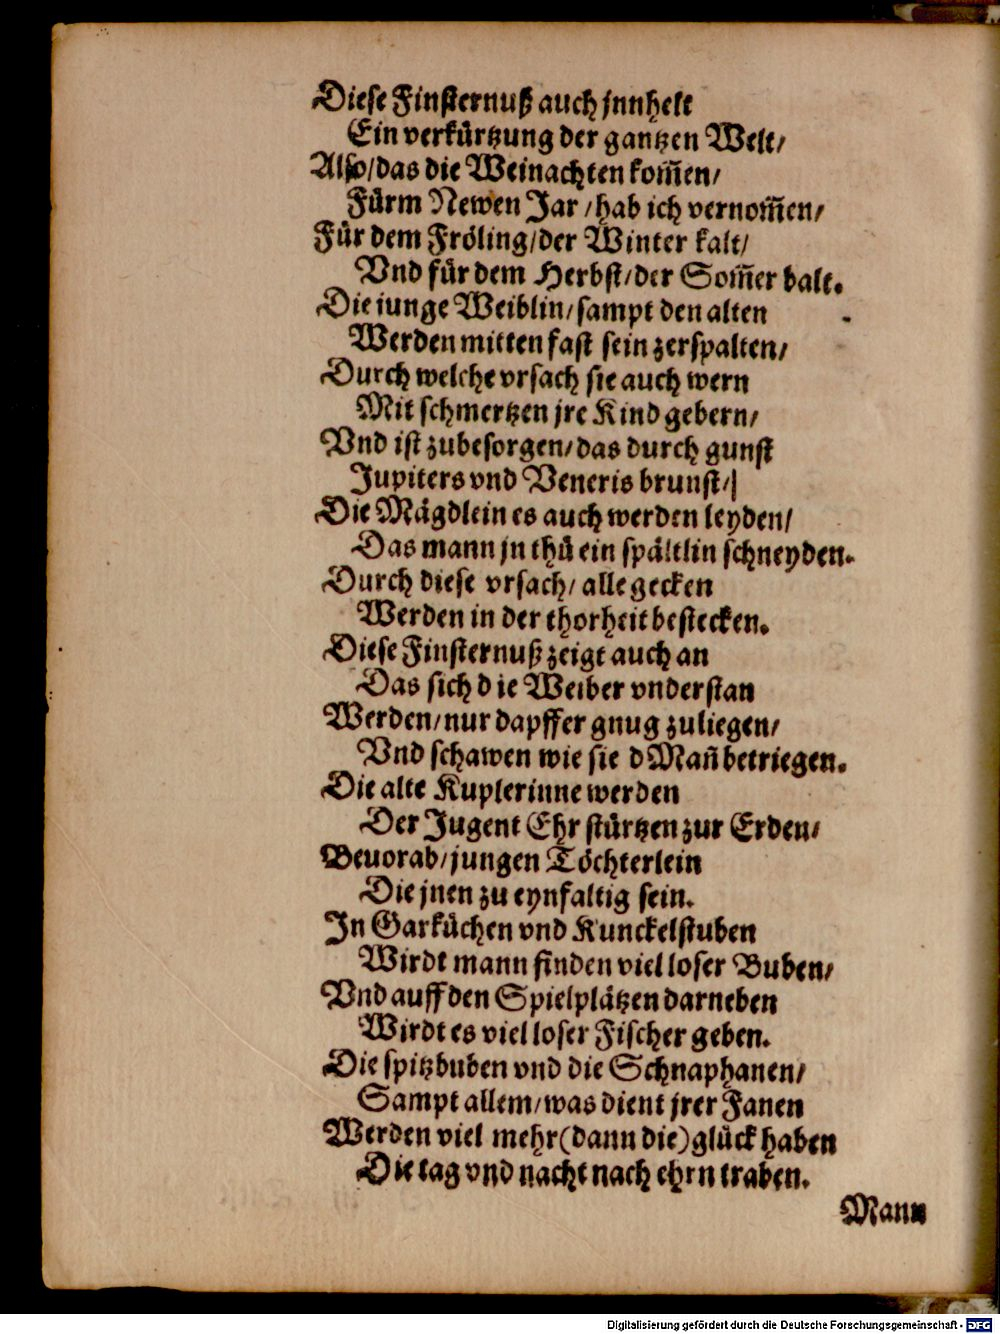 Diese Finsternuß auch jnnhelt
Ein verkürtzung der gantzen Welt/
Also/das die Weinachten kom̃en/
Fürm Newen Jar /hab ich vernom̃en/
Für dem Fröling/der Winter kalt/
Vnd für dem Herbst/der Som̃er balt.
Die junge Weiblin/sampt den alten
Werden mitten fast sein zerspalten/
Durch welche vrsach sie auch wern
Mit schmertzen jre Kind gebern/
Vnd ist zubesorgen/das durch gunst
Jupiters vnd Veneris brunst/
Die Mägdlein es auch werden leyden/
Das mann jn thů ein spältlin schneyden.
Durch diese vrsach/ alle gecken
Werden in der thorheit bestecken.
Diese Finsternuß zeigt auch an
Das sich die Weiber vnderstan
Werden/nur dapffer gnug zuliegen/
Vnd schawen wie sie d Mañ betriegen.
Die alte Kuplerinne werden
Der Jugent Ehr stürtzen zur Erden/
Beuorab/jungen Töchterlein
Die jnen zu eynfaltig sein.
In Garküchen vnd Kunckelstuben
Wirdt mann finden viel loser Buben/
Vnd auff den Spielplätzen darneben
Wirdt es viel loser Fischer geben.
Die spitzbuben vnd die Schnaphanen/
Sampt allem/was dient jrer Fanen
Werden viel mehr(dann die)glück haben
Die tag vnd nacht nach ehrn traben.
Mann
Digitalisierung gefördert durch die Deutsche Forschungsgemeinschaft - DFG